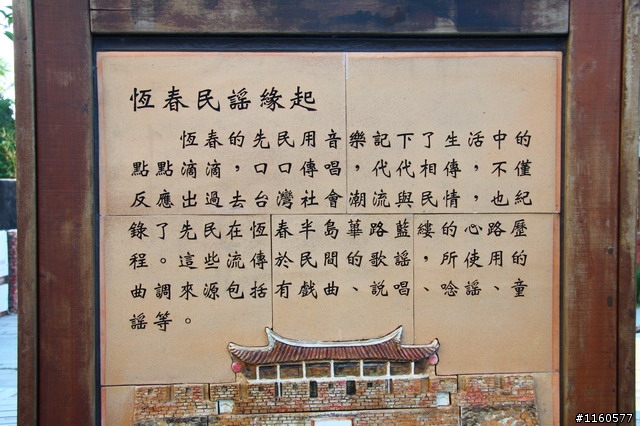 恆春民謡緣起
恆春的先民用音樂記下了生活中的
點點滴滴，口口傳唱，代代相傳，不僅
反應出過去台灣社會潮流與民情，也紀
錄了先民在恆春半島蓽路藍縷的心路歷
程。這些流傳於民間的歌謡，所使用的
曲調來源包括有戲曲、説唱、唸謡、童
謡等。
#1160577